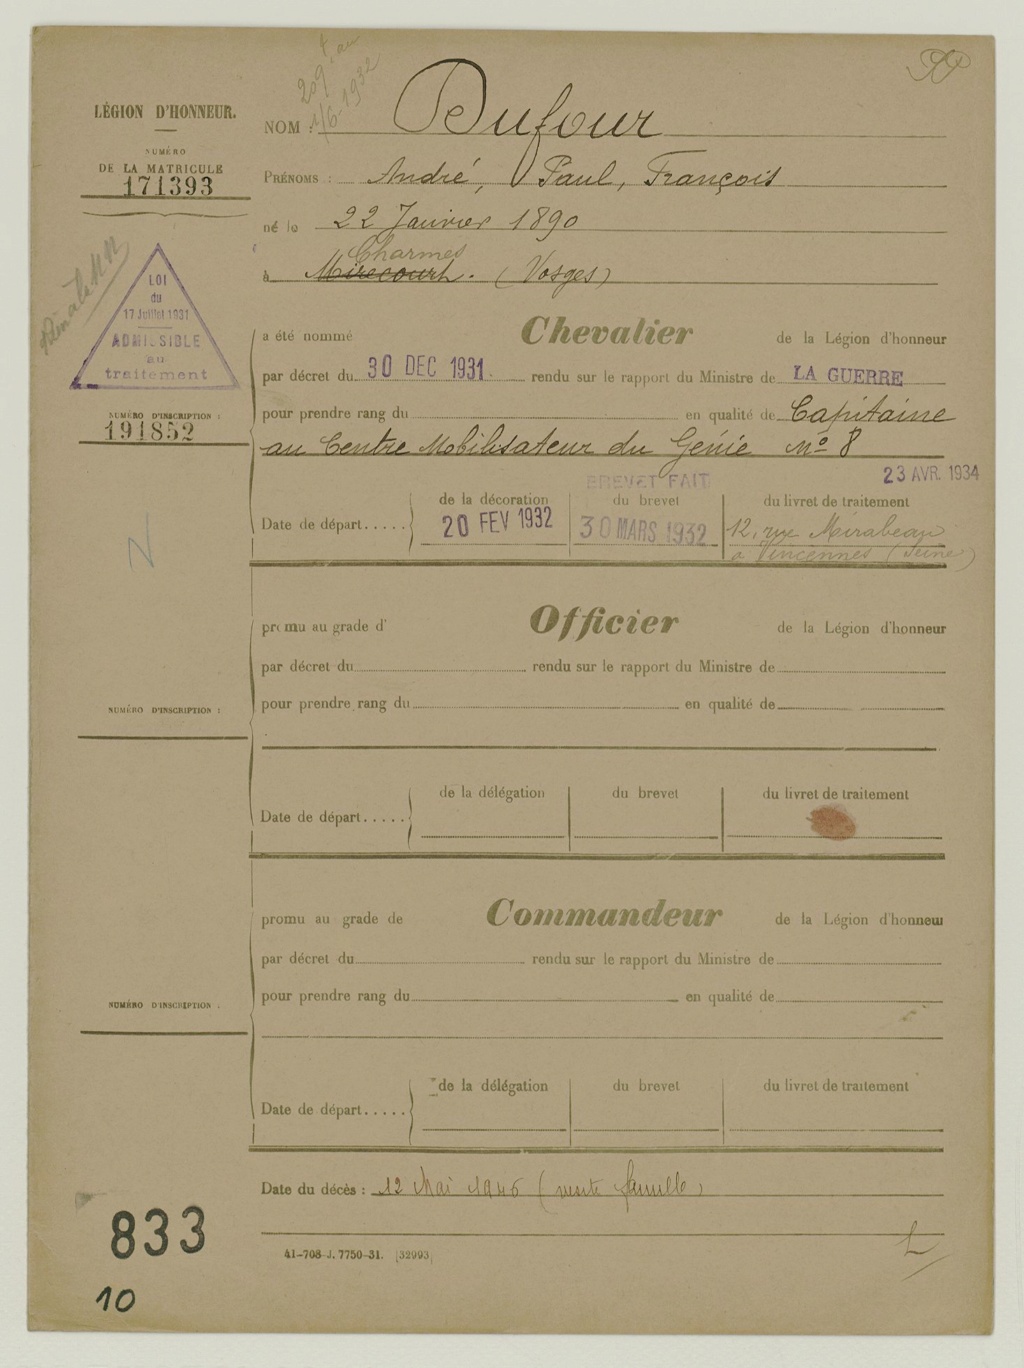 LÉGION D'HONNEUR.
NUMÉRO
DE LA MATRICULE
171393
1/6-1932
NOM : Dufour
PRÉNOMS : André, Paul, François
né le 22 Janvier 1890
Charmes
à Mirecourt. (Vosges)
LOI
du
17 Juillet 1931
ADMISSIBLE
au
traitement
NUMÉRO D'INSCRIPTION :
191852
a été nommé Chevalier de la Légion d'honneur
par décret du 30 DEC 1931. rendu sur le rapport du Ministre de LA GUERRE
pour prendre rang du en qualité de Capitaine
au Centre Mobilisateur du Génie No 8
BREVET FAIT
23 AVR. 1934
Date de départ..... de la décoration du brevet du livret de traitement
20 FEV 1932 30 MARS 1932 12, rue Mirabeau
à Vincennes (Seine)
N
promu au grade d' Officier de la Légion d'honneur
par décret du rendu sur le rapport du Ministre de
pour prendre rang du en qualité de
NUMÉRO D'INSCRIPTION :
Date de départ..... de la délégation du brevet du livret de traitement
promu au grade de Commandeur de la Légion d'honneur
par décret du rendu sur le rapport du Ministre de
pour prendre rang du en qualité de
NUMÉRO D'INSCRIPTION .
Date de départ..... de la délégation du brevet du livret de traitement
Date du décès : 12 Mai 1946 (visite famille)
833
10
41-708-J. 7750-31. [32993]